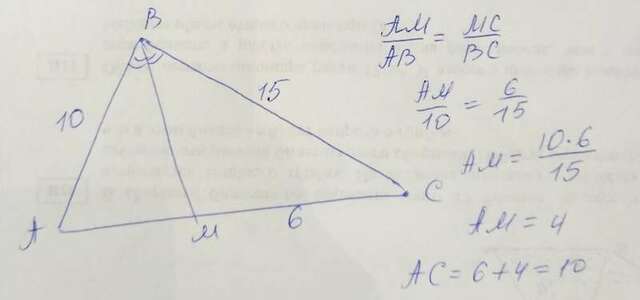 B
10
15
A
M
6
C
AM/AB = MC/BC
AM/10 = 6/15
AM = 10·6/15
AM = 4
AC = 6+4 = 10